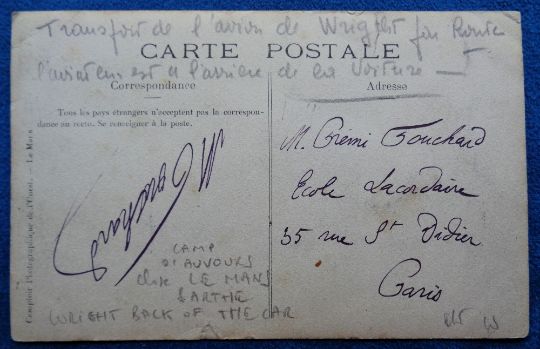 Transport de l'avion de Wright par Route
CARTE POSTALE
l'aviateur est à l'arrière de la Voiture
Correspondance
Adresse
Tous les pays étrangers n'acceptent pas la correspon-
dance au recto. Se renseigner à la poste.
M. Fouchard
M. Rémi Fouchard
Ecole Lacordaire
35 rue St Didier
Paris
CAMP
D'AUVOURS
close LE MANS
SARTHE
WRIGHT BACK OF THE CAR
Comptoir Photographique de l'Ouest. - Le Mans